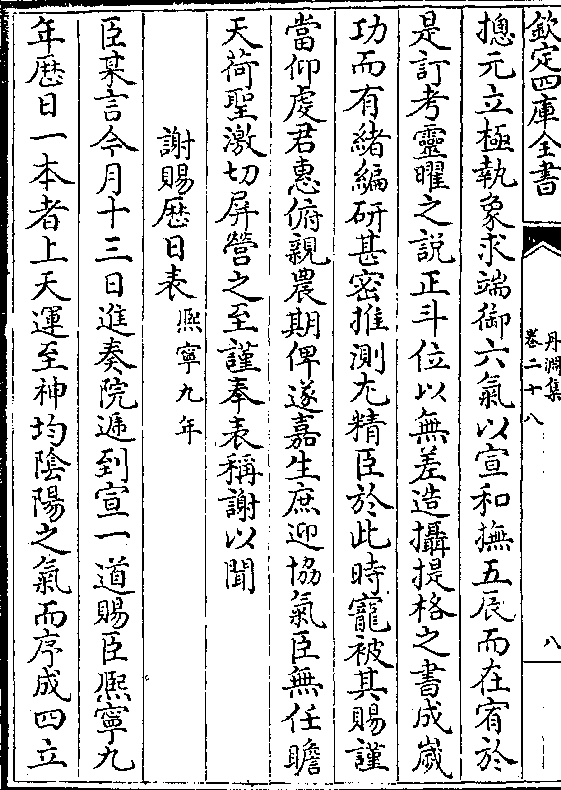 欽定四庫全書
丹淵集
卷二十八
八
摠元立極執象求端御六氣以宣和撫五辰而在宥於
是訂考靈曜之說正斗位以無差造攝提格之書成嵗
功而有緒編研甚密推測尤精臣於此時寵被其賜謹
當仰虔君惠俯親農期俾遂嘉生庶迎協氣臣無任瞻
天荷聖激切屏營之至謹奉表稱謝以聞
謝賜歴日表熙寧九年
臣某言今月十三日進奏院遞到宣一道賜臣熙寧九
年歴日一本者上天運至神均陰陽之氣而序成四立